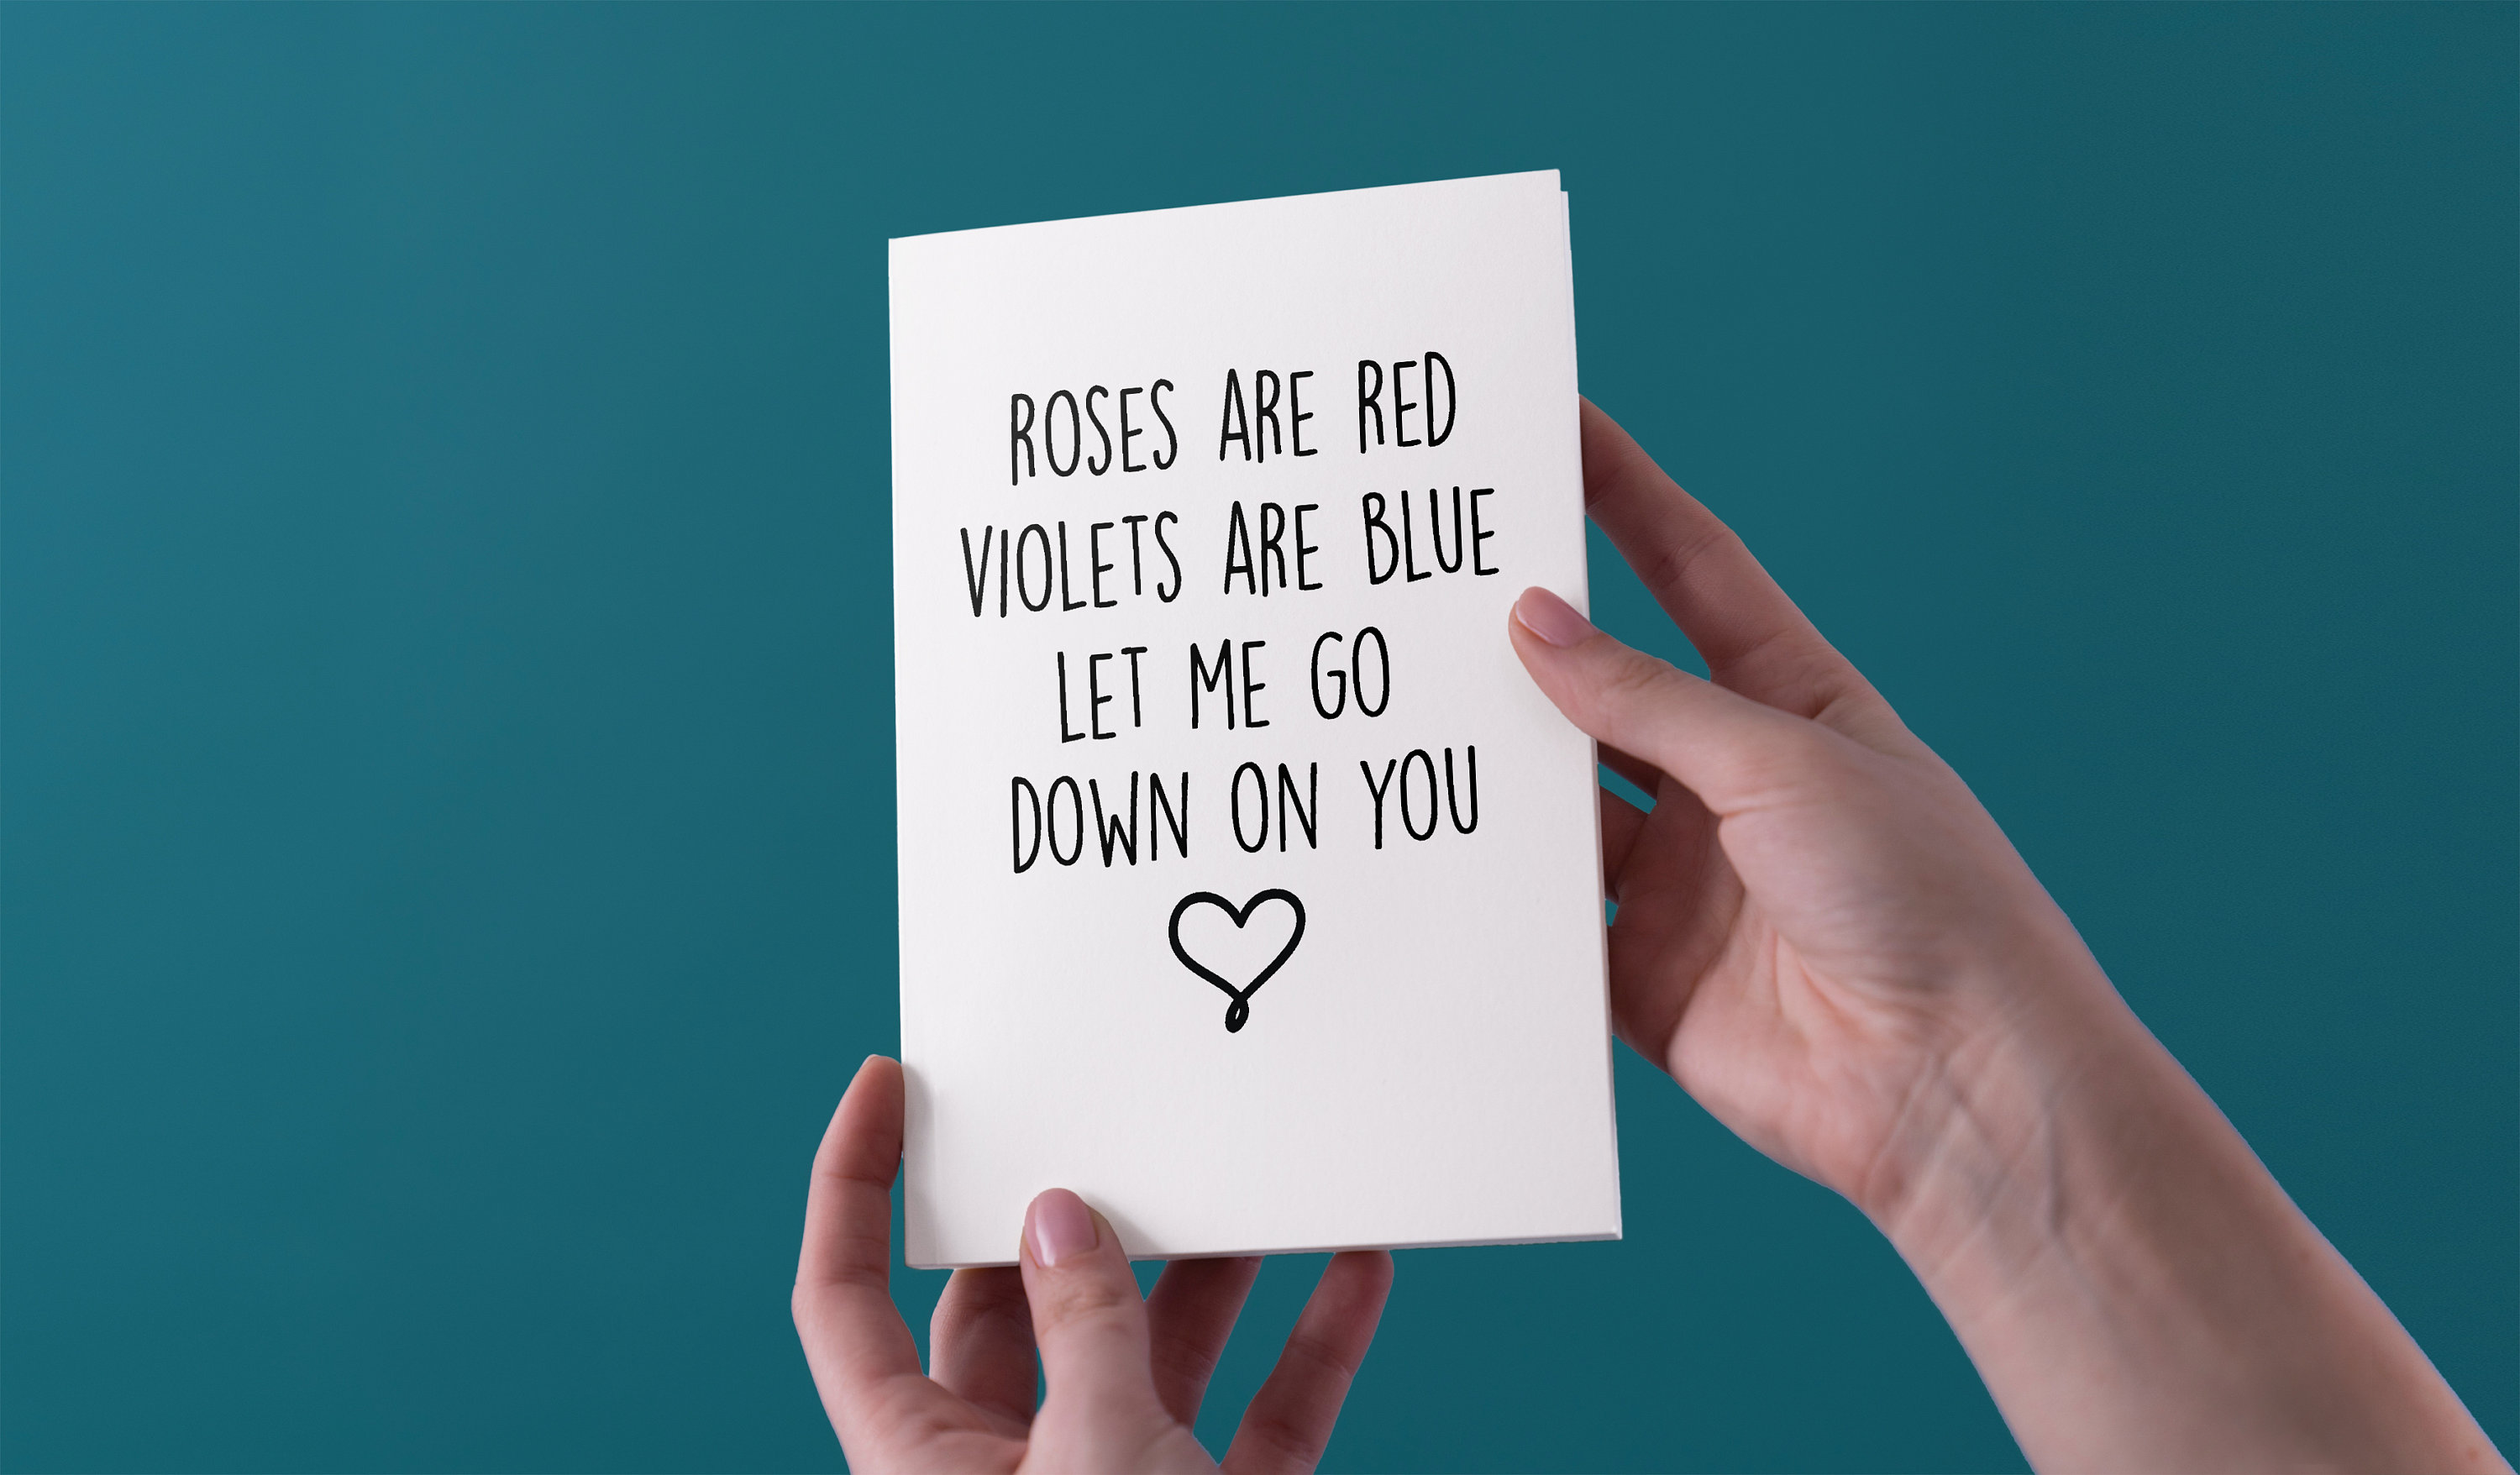 ROSES ARE RED
VIOLETS ARE BLUE
LET ME GO
DOWN ON YOU